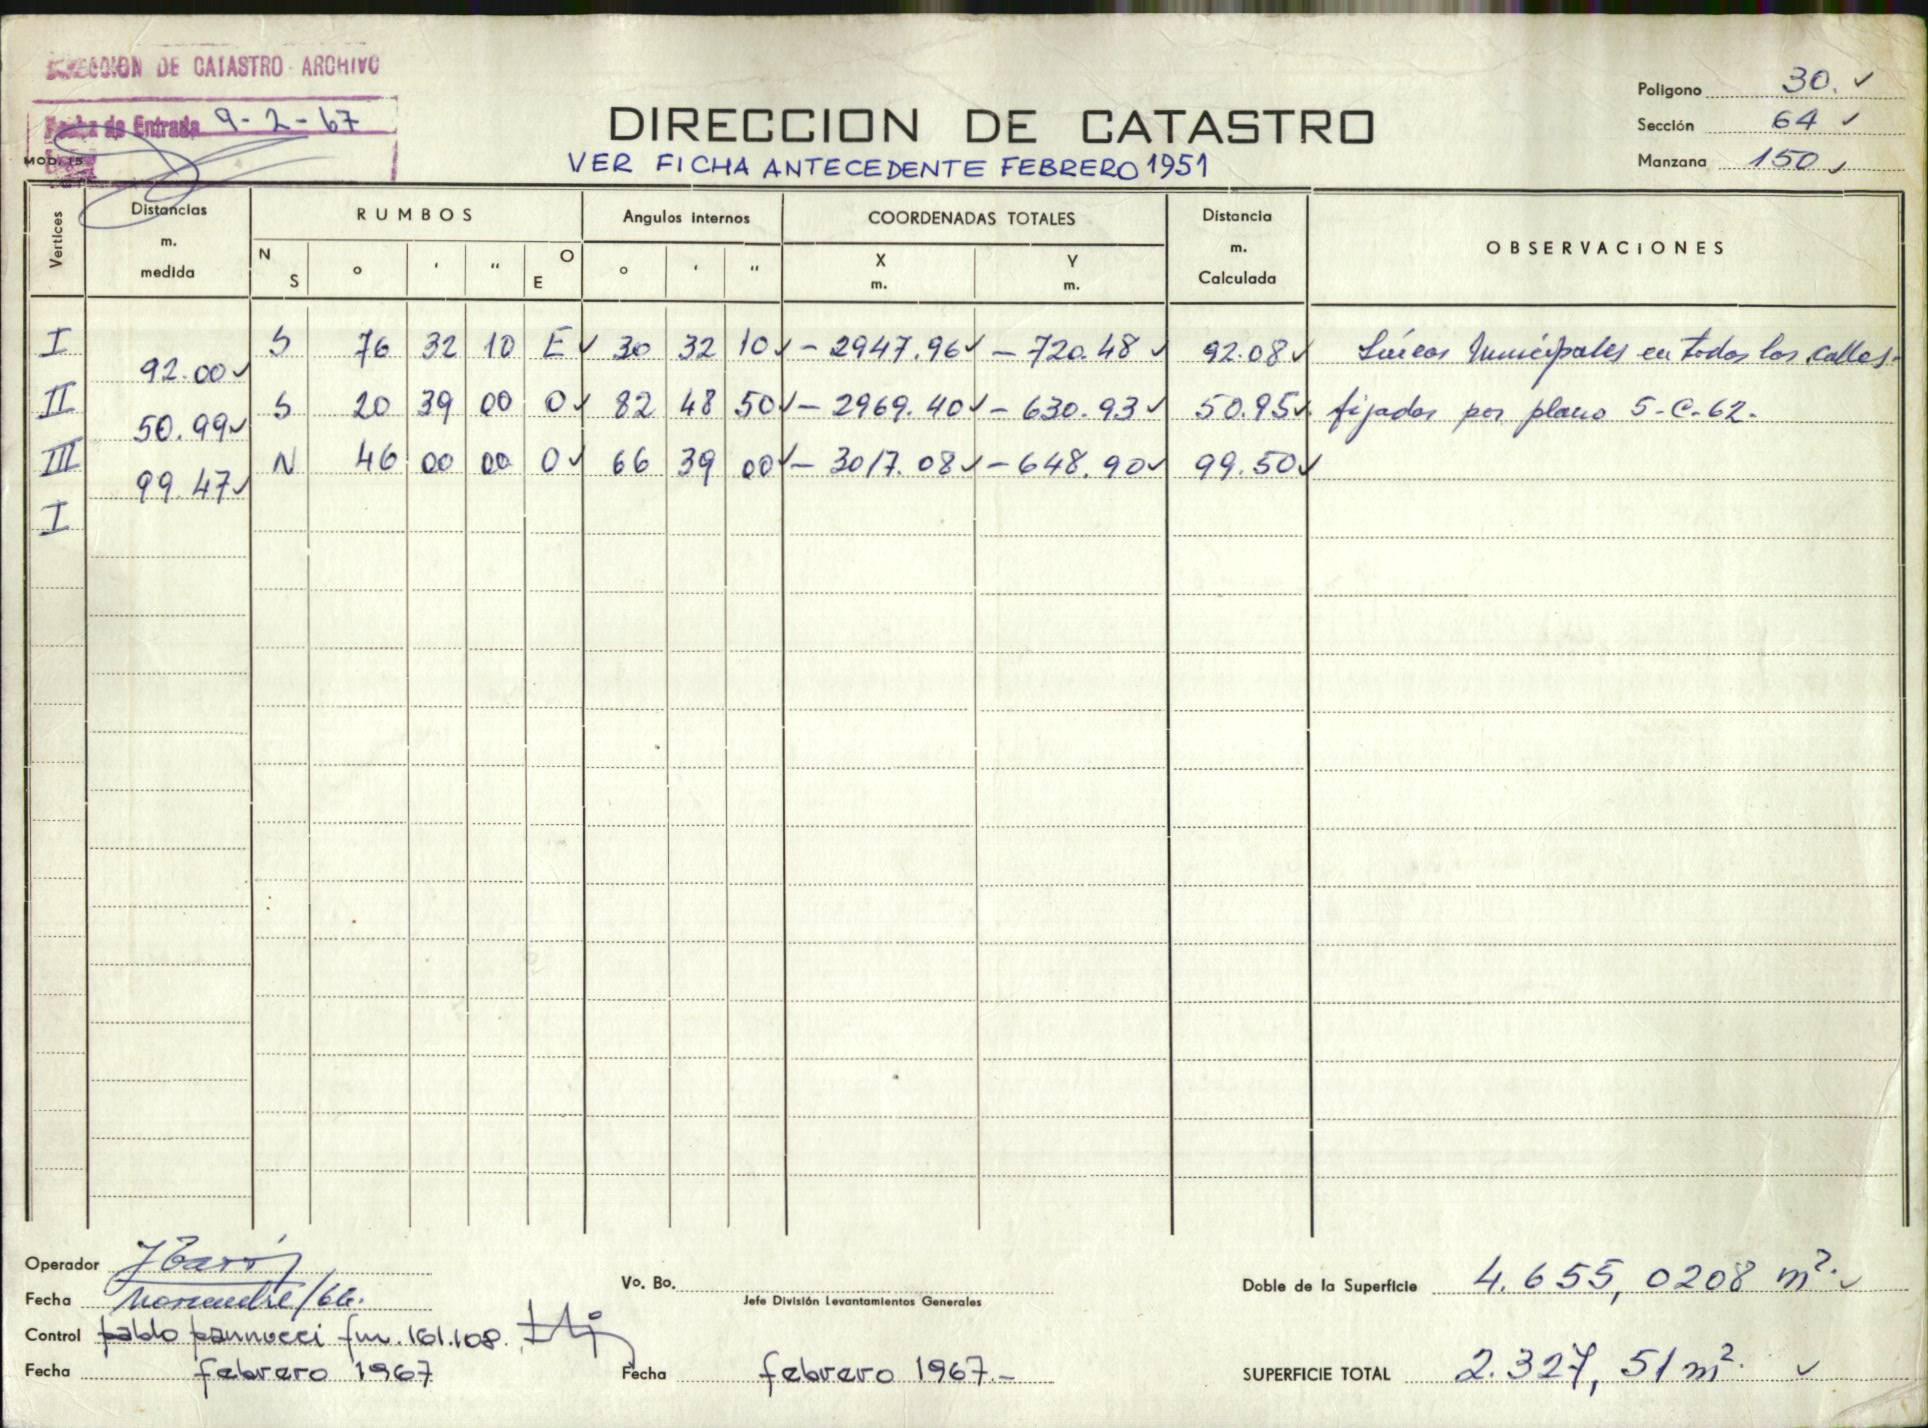 DIRECCION DE CATASTRO - ARCHIVO
Fecha de Entrada 9-2-67
MOD. 15
DIRECCION DE CATASTRO
VER FICHA ANTECEDENTE FEBRERO 1951
Poligono 30. ✓
Sección 64 ✓
Manzana 150 ✓
Vertices Distancias m. medida RUMBOS Angulos internos COORDENADAS TOTALES Distancia m. Calculada OBSERVACIONES
N S o ' " O E o ' " X m. Y m.
I S 76 32 10 E ✓ 30 32 10 ✓ - 2947.96 ✓ - 720.48 ✓ 92.08 ✓ Líneas Municipales en todas las calles-
92.00 ✓
II S 20 39 00 O ✓ 82 48 50 ✓ - 2969.40 ✓ - 630.93 ✓ 50.95 ✓ fijadas por plano 5-C-62.-
50.99 ✓
III N 46 00 00 O ✓ 66 39 00 ✓ - 3017.08 ✓ - 648.90 ✓ 99.50 ✓
99.47 ✓
I
Operador
Fecha Noviembre/66.
Control pablo pannucci fm. 161.108.
Fecha febrero 1967
Vo. Bo.
Jefe División Levantamientos Generales
Fecha febrero 1967.-
Doble de la Superficie 4.655,0208 m². ✓
SUPERFICIE TOTAL 2.327,51 m². ✓